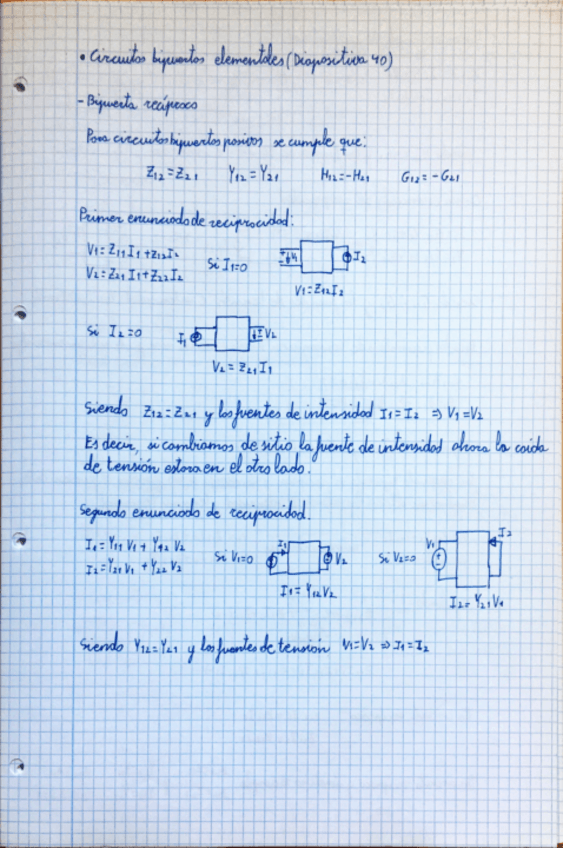 • Circuitos bipuertos elementales (Diapositiva 40)
- Bipuerta recíproco
Para circuitos bipuertos pasivos se cumple que:
Z12 = Z21 Y12 = Y21 H12 = -H21 G12 = -G21
Primer enunciado de reciprocidad:
V1 = Z11 I1 + Z12 I2
V2 = Z21 I1 + Z22 I2
Si I1=0
V1
I2
V1 = Z12 I2
Si I2=0
I1
V2
V2 = Z21 I1
Siendo Z12 = Z21 y las fuentes de intensidad I1 = I2 ⇒ V1 = V2
Es decir, si cambiamos de sitio la fuente de intensidad ahora la caida
de tensión estara en el otro lado.
Segundo enunciado de reciprocidad.
I1 = Y11 V1 + Y12 V2
I2 = Y21 V1 + Y22 V2
Si V1=0
I1
V2
I1 = Y12 V2
Si V2=0
V1
I2
I2 = Y21 V1
Siendo Y12 = Y21 y las fuentes de tensión V1 = V2 ⇒ I1 = I2